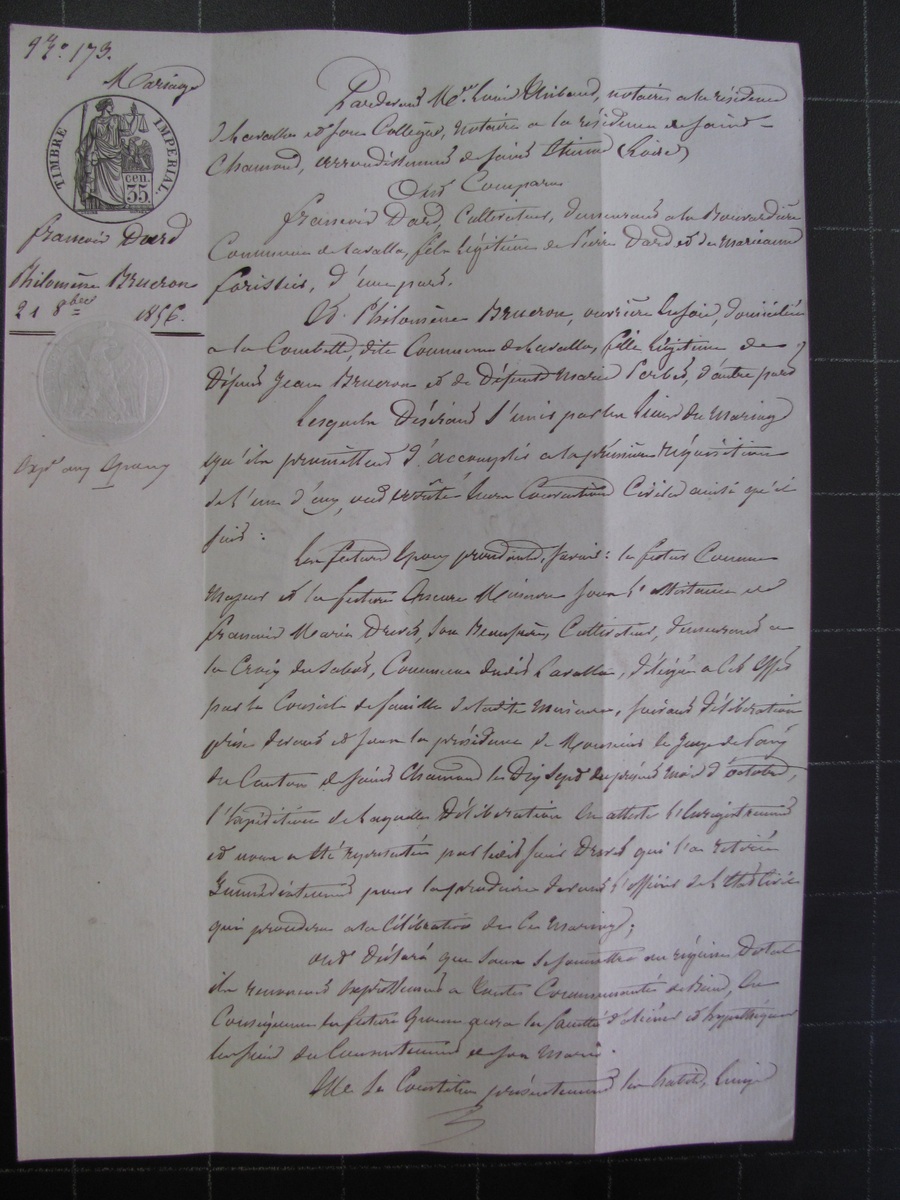 173.
Mariage
TIMBRE IMPÉRIAL
35 cen.
François Dard
Philomène Brueron
21 8bre 1856.
Expn aux Epoux
Pardevant Me Louis Thibaud, notaire a la résidence
de Lavalla et Jean Collégat, notaire a la résidence de Saint-
Chamond, arrondissement de Saint Etienne (Loire)
Ont Comparu
François Dard, Cultivateur, demeurant a la
Commune de Lavalla, fils légitime de Pierre Dard et de Marianne
d'une part.
Et Philomène Brueron, ouvrière en soie, domiciliée
a la Combette, dite Commune de Lavalla, fille légitime de
Défunt Jean Brueron et de Défunte Marie d'autre part
Lesquels Désirant s'unir par les liens du Mariage
qu'ils promettent d'accomplir a la première réquisition
de l'un d'eux, ont arrêté leurs Conventions Civiles ainsi qu'il
suit :
Les futurs Epoux procèdent, savoir : le futur Comme
Majeur et la future Encore Mineure sous l'assistance de
François Marie son Beaufrère, Cultivateur, demeurant a
la Croix du Commune dudit Lavalla, délégué a Cet Effet
par le Conseil de famille de ladite Mineure, suivant délibération
prise devant et sous la présidence de Monsieur le Juge de Paix
du Canton de Saint Chamond le Dix Sept du présent mois d'octobre,
l'Expédition de laquelle Délibération En atteste l'Enregistrement
et nous a été représentée par ledit qui l'a retirée
Immédiatement pour la produire devant l'officier de l'Etat Civil
qui procédera a la Célébration de Ce Mariage ;
ont Déclaré que sans se soumettre au régime Dotal
ils renoncent Expressément a toutes Communautés de Biens, En
Conséquence la future Epouse aura la faculté d'aliéner et hypothéquer
les siens du Consentement de son Mari.
Elle se Constitue présentement les habits, linge